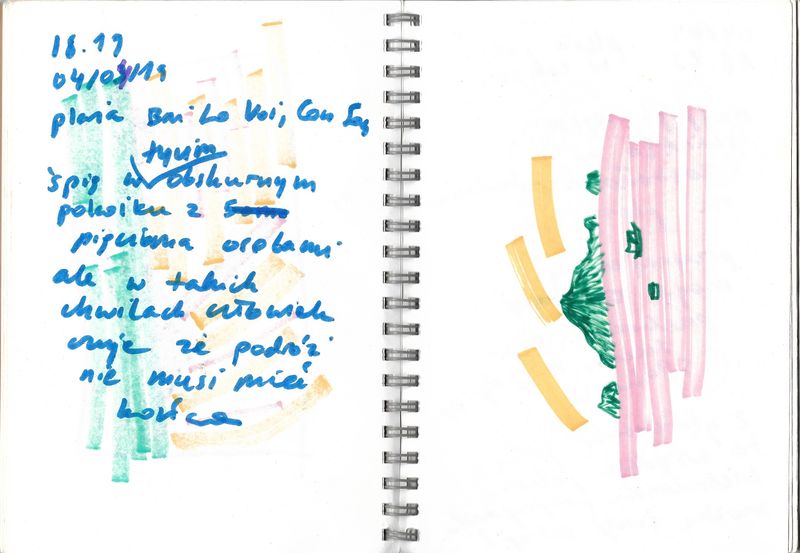 18.19
04/04/19
plaża Bai Lo Voi, Con
śpię w obskurnym
pokoiku z
pięcioma osobami
ale w takich
chwilach człowiek
czuje że podróż
nie musi mieć
końca